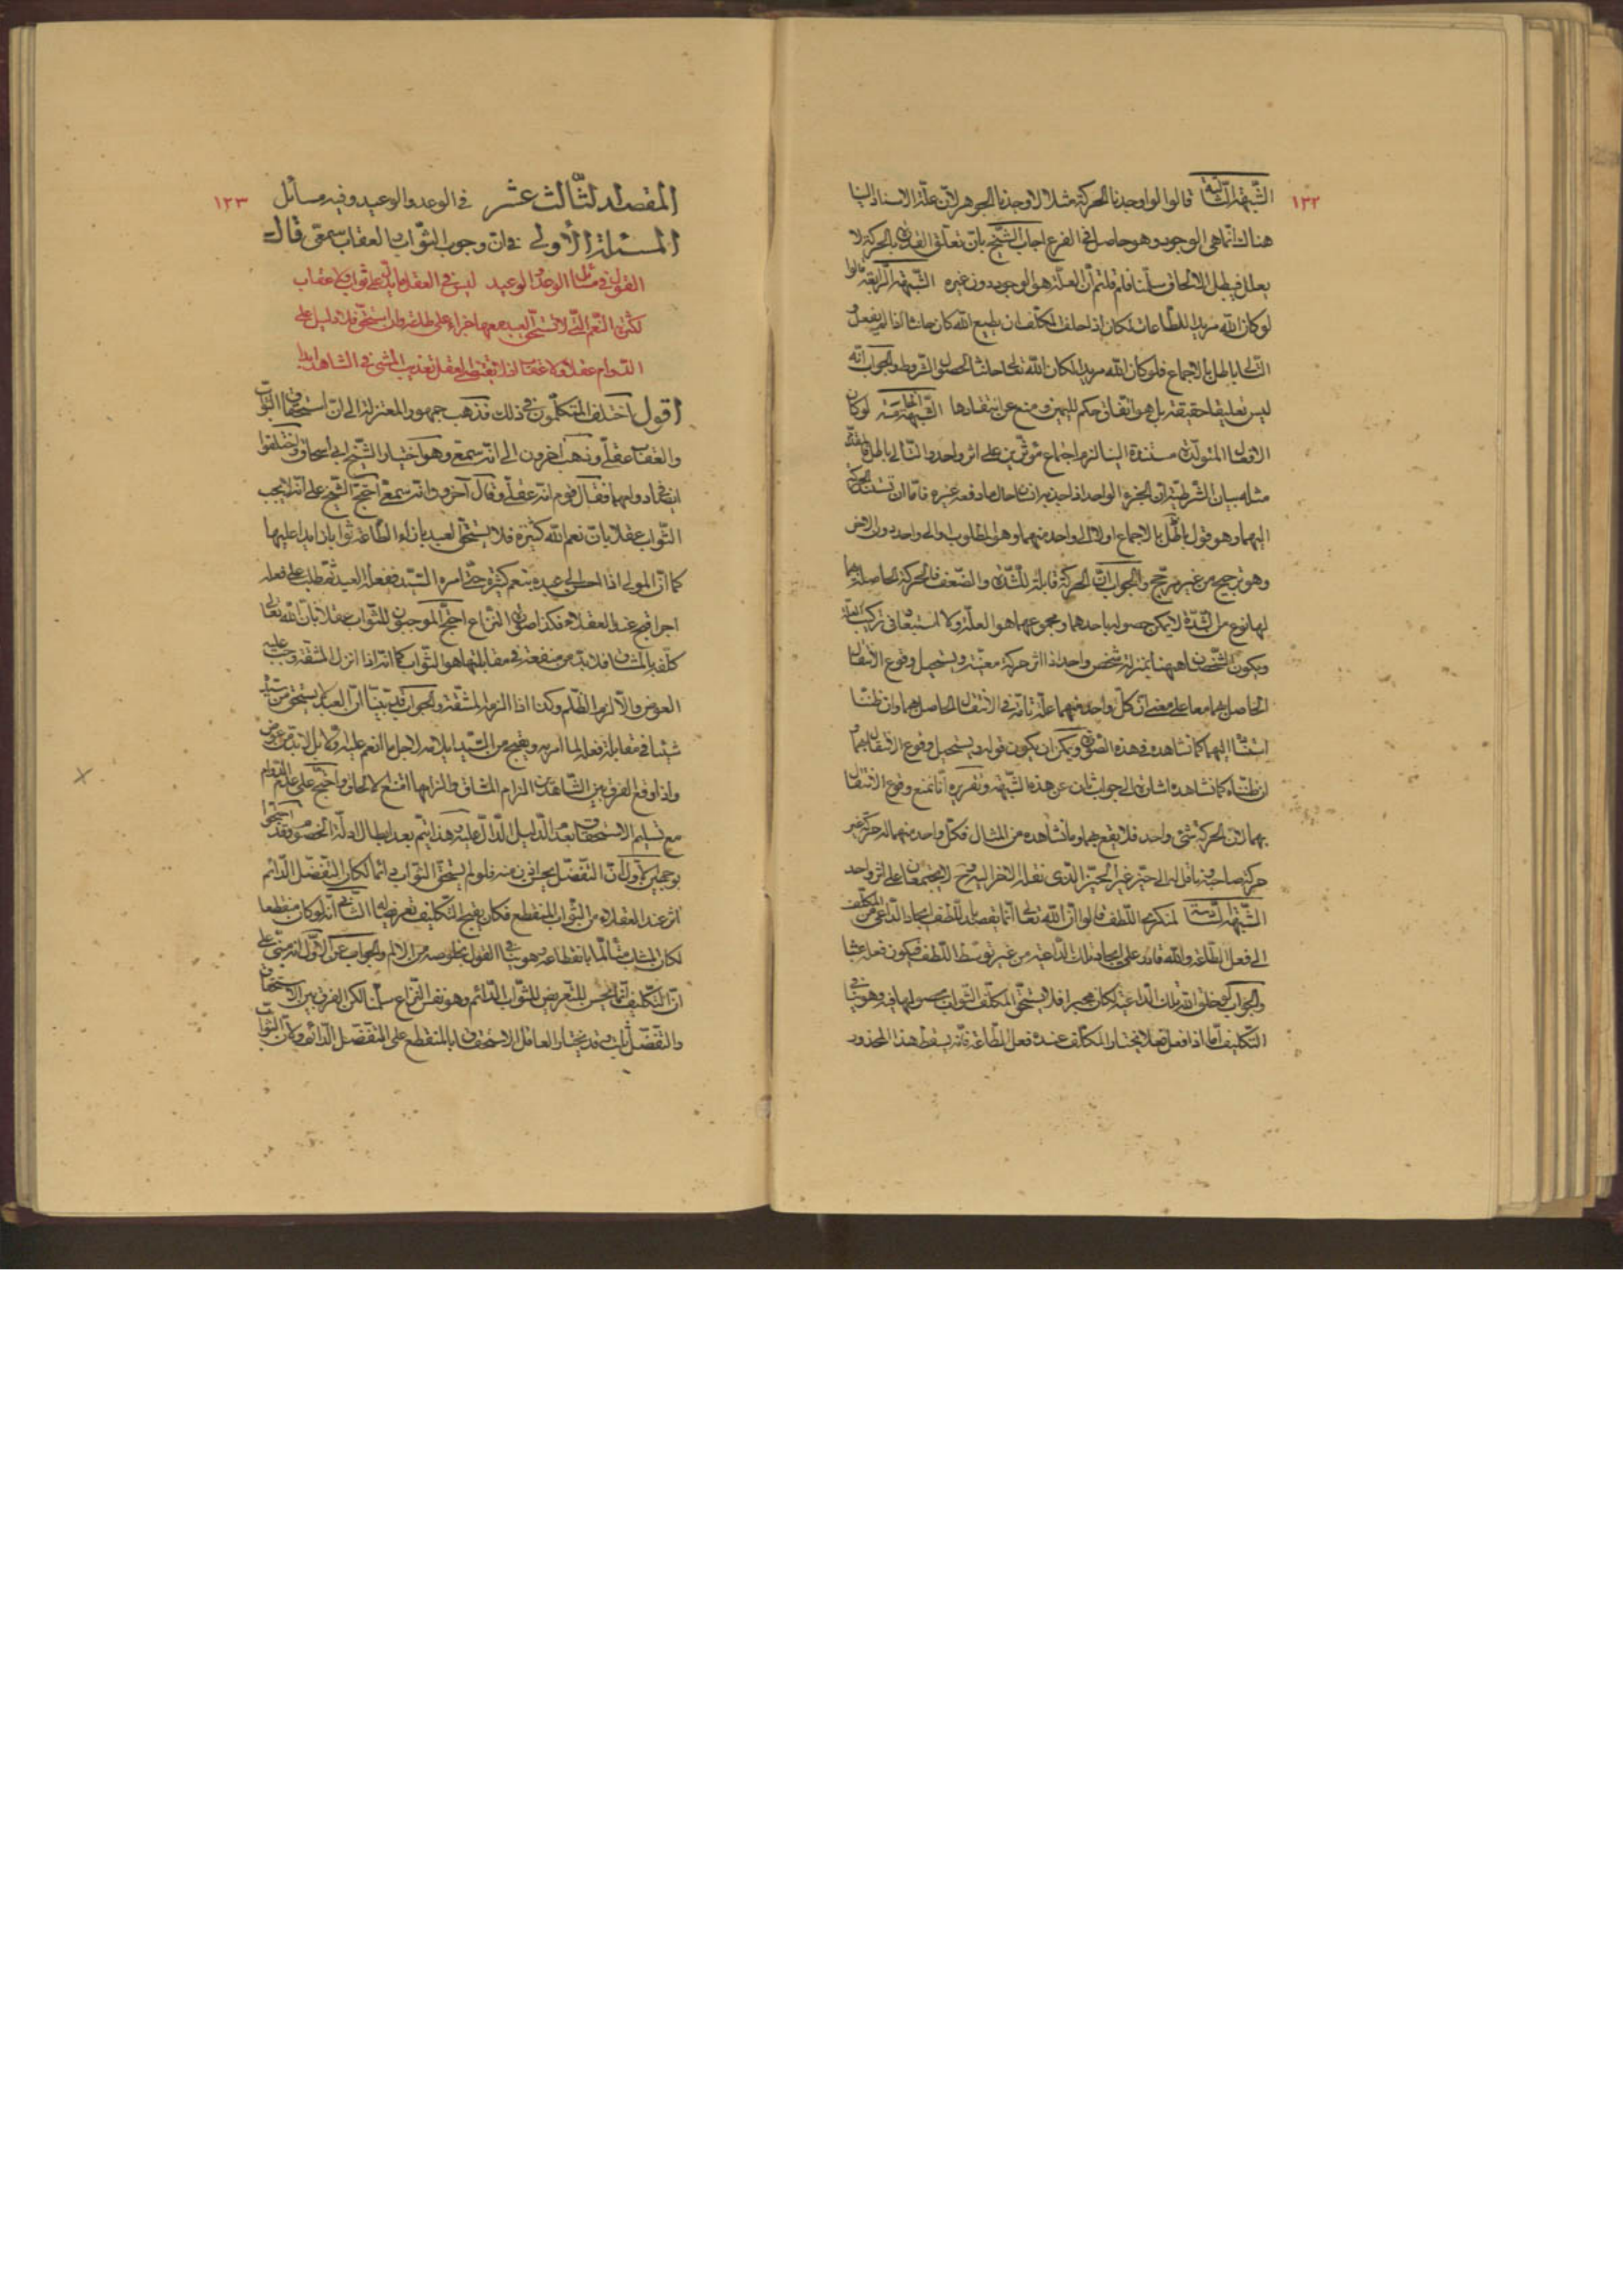 ١٢٢
الشبهة الثالثة قالوا لو اوجدنا الحركة مثلا لاوجدنا الجوهر لان علة الاستناد الينا
هناك انما هى الوجود وهو حاصل فى الفرع اجاب الشيخ بان تعلق القدرة بالحركة لا
يعلل فيبطل الالحاق سلمنا فلم قلتم ان العلة هو الوجود دون غيره الشبهة الرابعة قالوا
لو كان الله مريدا للطاعات لكان اذا حلف المكلف ان يطيع الله كان حانثا اذا لم يفعل و
التالى باطل بالاجماع فلو كان الله مريدا لكان الله تعالى حانثا لحصول الشرط والجواب انه
ليس تعليقا حقيقة بل هو اتفاق حكم لليمين ومنع عن انعقادها الشبهة الخامسة لو كان
الافعال المتولدة مستندة الينا لزم اجتماع مؤثرين على اثر واحد والتالى باطل فالمقدم
مثله بيان الشرطية ان الجزء الواحد اذا جذبه انسان حال ما دفعه غيره فاما ان تستند الحركة
اليهما وهو قول باطل بالاجماع اولا الى واحد منهما وهو المطلوب او الى واحد دون الاخر
وهو ترجيح من غير مرجح والجواب ان الحركة قابلة للشدة والضعف فالحركة الحاصلة بهما
لها نوع من الشدة لا يمكن حصوله باحدهما ومجموعهما هو العلة ولا استبعاد فى تركيب العلة
ويكون الشخصان ههنا بمنزلة شخص واحد اذا اثر حركة معينة ويستحيل وقوع الانتقال
الحاصل بهما معا على معنى ان كل واحد منهما علة تامة فى الانتقال الحاصل بهما وان ظننا
استنادا اليهما كما نشاهده فى هذه الصورة ويمكن ان يكون قوله ويستحيل وقوع الانتقال بهما و
ان ظنناه كما نشاهده اشارة الى جواب ثان عن هذه الشبهة وتقريره انا نمنع وقوع الانتقال
بهما لان الحركة شئ واحد فلا يقع بهما وما نشاهده من المثال فكل واحد منهما له حركة غير
حركة صاحبه ناقل له الى حيز غير الحيز الذى نقله الاخر اليه وح لا يجتمعان على اثر واحد
الشبهة السادسة لمنكرى اللطف قالوا ان الله تعالى انما يقصد باللطف ايجاد الداعى من المكلف
الى فعل الطاعة والله قادر على ايجاد تلك الداعية من غير توسط اللطف فيكون فعله عبثا
والجواب لو خلق الله تلك الداعية لكان مجبرا فلا يستحق المكلف الثواب بحصولها فيه وهو ينافى
التكليف اما اذا فعل فعلا يختار المكلف عنده فعل الطاعة فانه يسقط هذا المحذور
١٢٣
المقصد الثالث عشر فى الوعد والوعيد وفيه مسائل
المسئلة الاولى فى ان وجوب الثواب والعقاب سمعى قال
القول فى مسائل الوعد والوعيد ليس فى العقل ما يدل على ثواب ولا عقاب
لكثرة النعم التى لا يستحق العبد معها جزاء على طاعة ولو استحق فلا دليل على
الدوام عقلا ولا عقابا اذ لا يقتضى العقل تعذيب المسئ فى الشاهد ابدا
اقول اختلف المتكلمون فى ذلك فذهب جمهور المعتزلة الى ان استحقاق الثواب
والعقاب عقلى وذهب اخرون الى انه سمعى وهو اختيار الشيخ ابى اسحاق واختلفوا
ايضا فى دوامهما فقال قوم انه عقلى وقال آخرون انه سمعى احتج الشيخ على انه لا يجب
الثواب عقلا بان نعم الله كثيرة فلا يستحق العبد بازاء الطاعة ثوابا زايدا عليها
كما ان المولى اذا احسن الى عبده بنعم كثيرة حتى امره السيد ففعل العبد ثم طلب على فعله
اجرا قبح عند العقلاء فكذا صورة النزاع احتج الموجبون للثواب عقلا بان الله تعالى
كلفه المشاق فلا بد من منفعة فى مقابلتها هو الثواب كما انه اذا انزل المشقة وجب عليه
العوض والا لزم الظلم وكذا اذا الزم المشقة والجواب قد بينا ان العبد لا يستحق من سيده
شيئا فى مقابلة فعله لما امر به ويقبح من السيد ايلامه لاجل ما انعم عليه اولا بل لا بد من عوض
واذا وقع الفرق بين الشاهدين الزام المشاق والزامها امتنع الالحاق واحتج على عدم الدوام
مع تسليم الاستحقاق بعدم الدليل الدال عليه وهذا يتم بعد ابطال ادلة الخصوم وقد احتجوا
بوجهين الاول ان التفضل يحسن منه فلو لم يستحق الثواب دائما لكان التفضل الدائم
اثر عند العقلاء من الثواب المنقطع فكان يقبح التكليف تعريضا له الثانى انه لو كان منقطعا
لكان المثاب متألما بانقطاعه وهو ينافى القول بخلوصه من الالم والجواب عن الاول انه مبنى على
ان التكليف انما يحسن للتعريض للثواب الدائم وهو نفس النزاع سلمنا لكن الفرق بين الاستحقاق
والتفضل ثابت وقد يختار العاقل الاستحقاق المنقطع على التفضل الدائم ولان الثواب